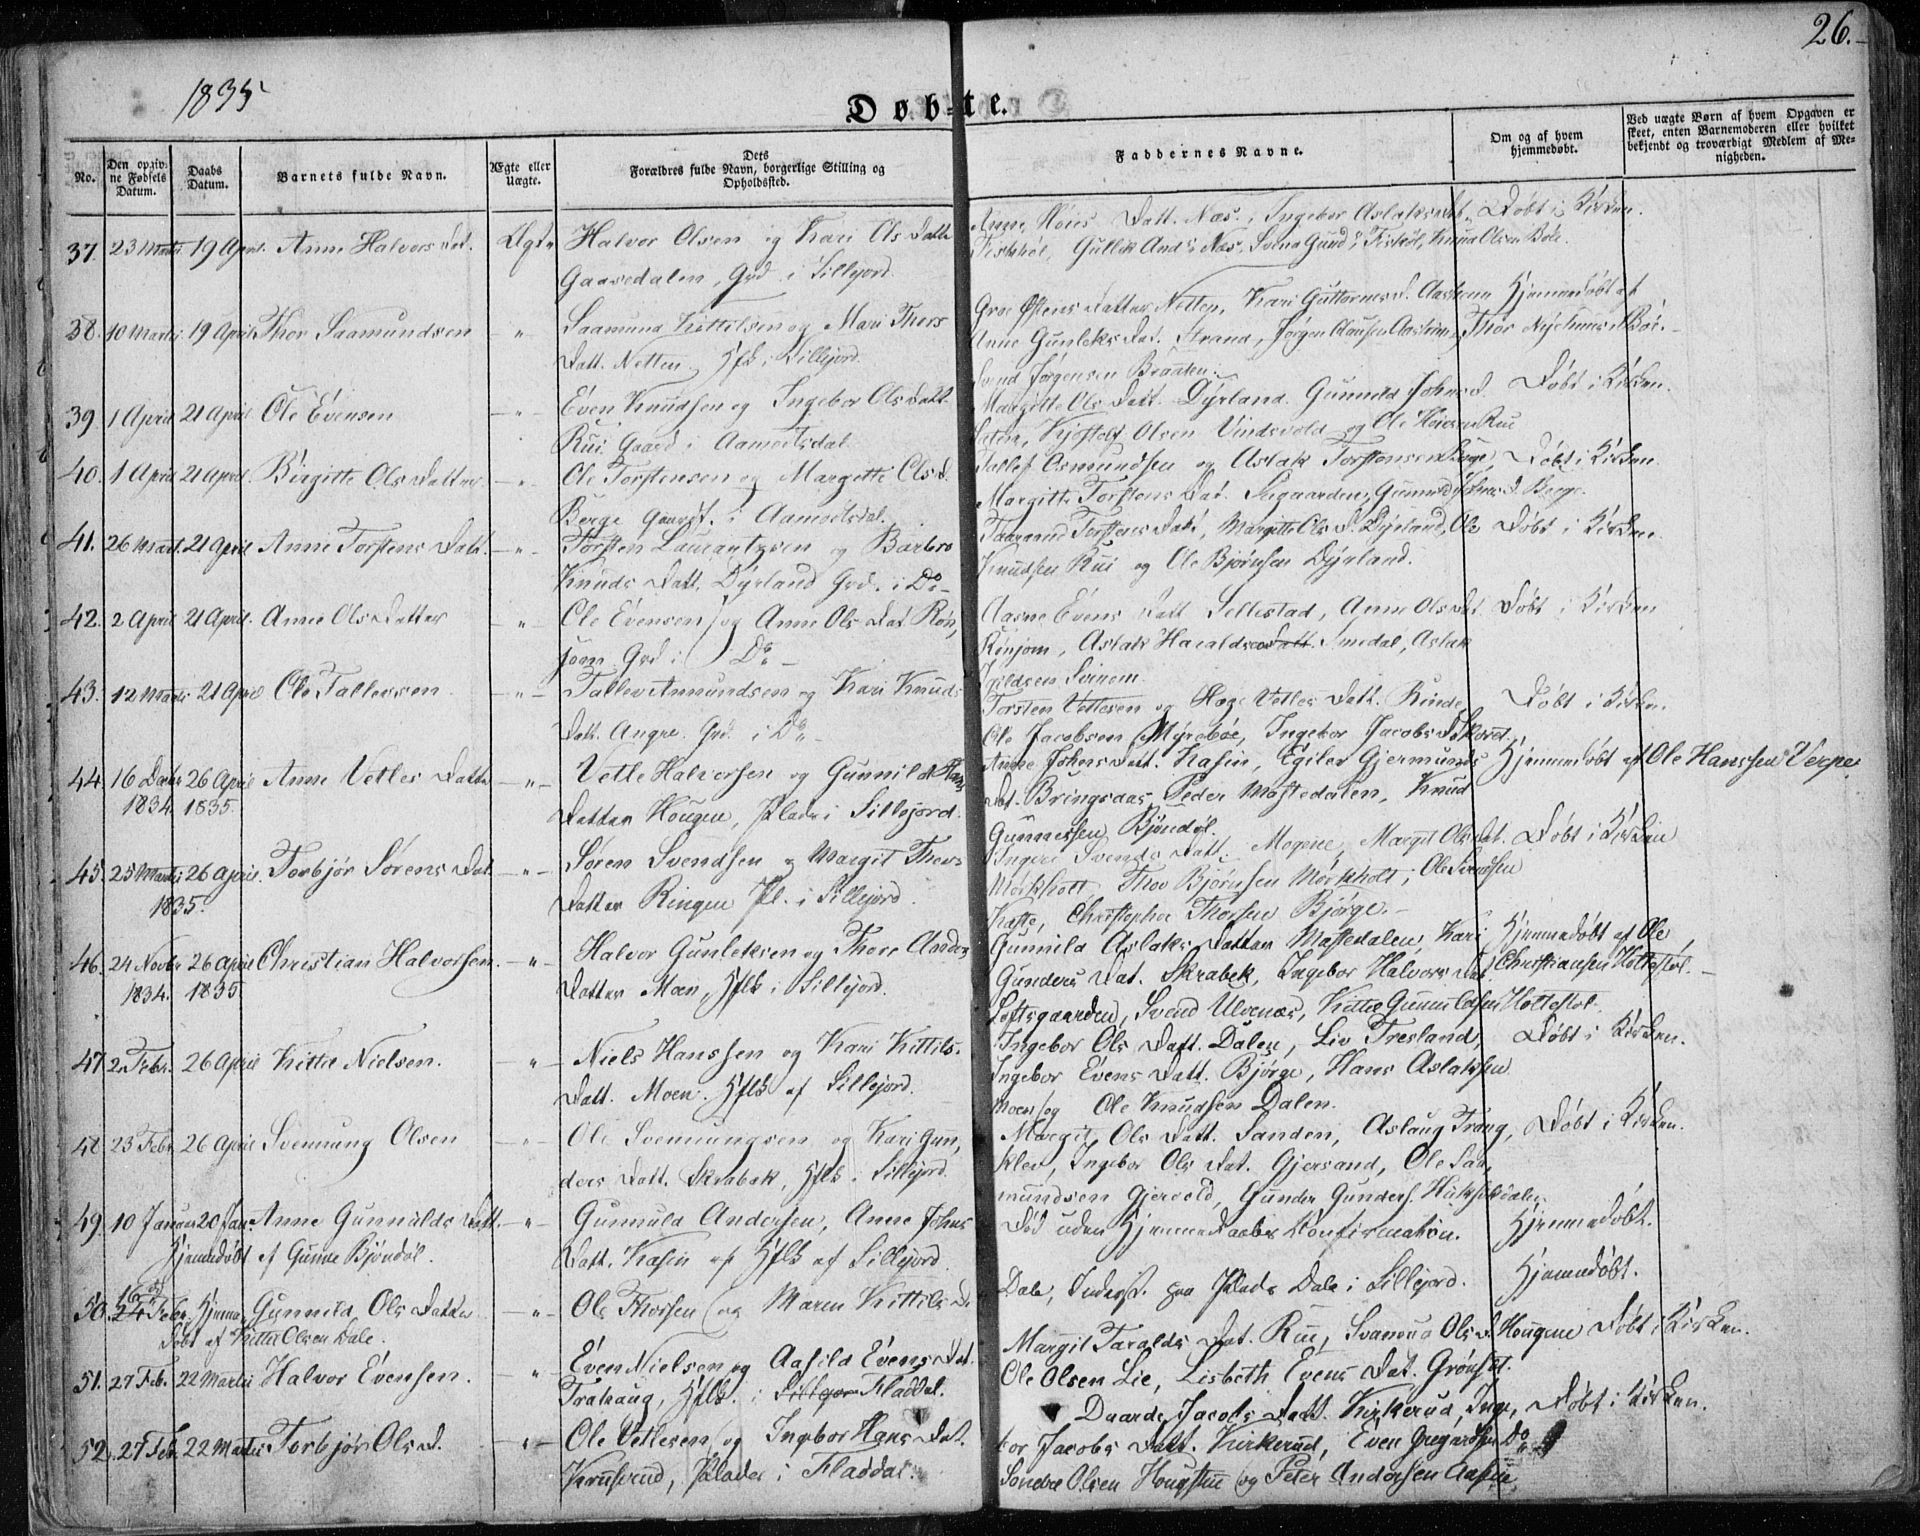 26.
1835
Døbte.
No.
Den opgiv-
ne Fødsels
Datum.
Daabs
Datum.
Barnets fulde Navn.
Ægte eller
Uægte.
Dets
Forældres fulde Navn, borgerlige Stilling og
Opholdssted.
Faddernes Navne.
Om og af hvem
hjemmedøbt.
Ved uægte Børn af hvem Opgaven er
skeet, enten Barnemoderen eller hvilket
bekjendt og troværdigt Medlem af Me-
nigheden.
37. 23 Martii 19 April. Anne Halvors Dat. Ægte Halvor Olsen og Kari Ols Datt.
Gaasedalen, Grd. i Sillejord.
Anne Datt. Næs, Ingebor Aslaks Dat. Døbt i Kirken.
Gullik And. Næs, Svend Gund. Knud Olsen
38. 10 Martii 19 April Thor Saamundsen -"- Saamund Kittilsen og Mari Thors
Datt. Netten, Hfls. i Sillejord.
Gro Østens Datter Netten, Kari Guttormsd. Hjemmedøbt af
Anne Gunleks Dat. Strand, Jørgen Thor
Svend Jørgensen Braaten.
39. 1 April 21 April Ole Evensen -"- Even Knudsen og Ingebor Ols Datt.
Rui Gaard i Aamotsdal.
Margitte Ols Datt. Dyrland. Gunnild Johns D. Døbt i Kirken.
Kjøstolf Olsen Vindsvold og Ole Rue
40. 1 April 21 April. Birgitte Ols Datter -"- Ole Torstensen og Margitte Ols D.
Berge Gaard. i Aamotsdal.
Tallef Osmundsen og Aslak Torstensen Berge, Døbt i Kirken.
Margitte Torstens Dat. Gunnild Berge.
41. 26 Mart. 21 April Anne Torstens Datt. -"- Torsten Laurantzsen og Barbro
Knuds Datt. Dyrland Grd. i Do -
Torstens Dat, Margitte Ols D. Dyrland, Ole Døbt i Kirken.
Knudsen Rui og Ole Bjørnsen Dyrland.
42. 2 April 21 April. Anne Ols Datter -"- Ole Evensen og Anne Ols Dat Røn,
jom Grd i Do -
Aasne Evens Datt Sellestad, Anne Ols Dat. Døbt i Kirken
Rønjom, Aslak Smedal, Aslak
Svinem.
43. 12 Martii 21 April Ole Tallevsen -"- Tallev Anmundsen og Kari Knuds
Datt. Grd. i Do -
Torsten Vettesen og Hæge Vetles Datt. Rinde Døbt i Kirken.
Ole Jacobsen Myrebøe, Ingebor Jacobs D.
44. 16 Decbr 26 April Anne Vetles Datter -"- Vetle Halvorsen og Gunnild Hans
1834. 1835.
Datter Hougen, Plads i Sillejord.
Anne Johns Datt. Kasin, Egilev Gjermunds Hjemmedøbt af Ole Hanssen Verpe
Dat. Bringsaas, Peder Mostedalen, Knud
Gunnessen Bjøndøl.
45. 25 Martii 26 April. Torbjør Sørens Dat. -"- Søren Svendsen og Margit Thors
1835.
Datter Ringen Pl. i Sillejord.
Ingeri Svends Datt. Mogene, Margit Ols Dat. Døbt i Kirken
Mørkholt, Thov Bjørnsen Mørkholt, Ole Svendsen
Kaste, Christopher Thorsen Bjørge.-
46. 24 Novbr 26 April Christian Halvorsen. -"- Halvor Gunleksen og Thore Anders
1834. 1835
Datter Moen, Hfls i Sillejord.
Gunnild Aslaks Datter Mostedalen, Kari Hjemmedøbt af Ole
Gunders Dat. Skrabek, Ingebor Halvors Dat. Christiansen Hottestøl. -
Loftsgaarden, Svend Ulvenæs, Kittil Gunnuldsen Hottestøl.
47. 2 Febr. 26 April Kittil Nielsen. -"- Niels Hanssen og Kari Kittils.
Datt. Moen. Hfls af Sillejord.
Ingebor Ols Datt. Dalen, Liv Tresland, Døbt i Kirken.
Ingebor Evens Datt. Bjørge, Hans Aslaksen
Moen, og Ole Knudsen Dalen.
48. 23 Febr 26 April Svennung Olsen -"- Ole Svennungsen og Kari Gun,
ders Datt. Skrabek, Hfls. i Sillejord.
Margit, Ols Datt. Sanden, Aslaug Trang, Døbt i Kirken.
klev, Ingebor Ols Dat. Gjersand, Ole Saa,
mundsen Gjervold, Gunder Gunders.
49. 10 Januar 20 Jan Anne Gunnulds Datt. -"- Gunnuld Andersen, Anne Johns
Hjemmedøbt af Gunne Bjøndøl.
Datt. Kasin af Hfls af Sillejord.
Død uden Hjemmedaabs Konfirmation. Hjemmedøbt.
50. 16 24 Febr. Hjemme, Gunnild Ols Datter -"- Ole Thorsen og Maren Kittils D.
døbt af Kittil Olsen Dale.
Dale, Inderst. paa Plads Dale i Sillejord. Hjemmedøbt.
51. 27 Feb. 22 Martii Halvor Evensen. -"- Even Nielsen og Aasild Evens Dat.
Trahaug, Hfls. i Sillejor Fladdal.
Margit Taralds Dat. Rui, Svanoug Ols D. Hougene Døbt i Kirken.
Ole Olsen Lie, Lisbeth Evens Dat. Grønset.
52. 27 Feb. 22 Martii Torbjør Ols D. -"- Ole Vetlesen og Ingebor Hans Dat.
Kruserud, Plads i Fladdal.
Daarde Jacobs Datt. Kirkerud, Inge, Døbt i Kirken.
bor Jacobs Datt. Kirkerud, Even Do
Sondre Olsen og Peter Andersen